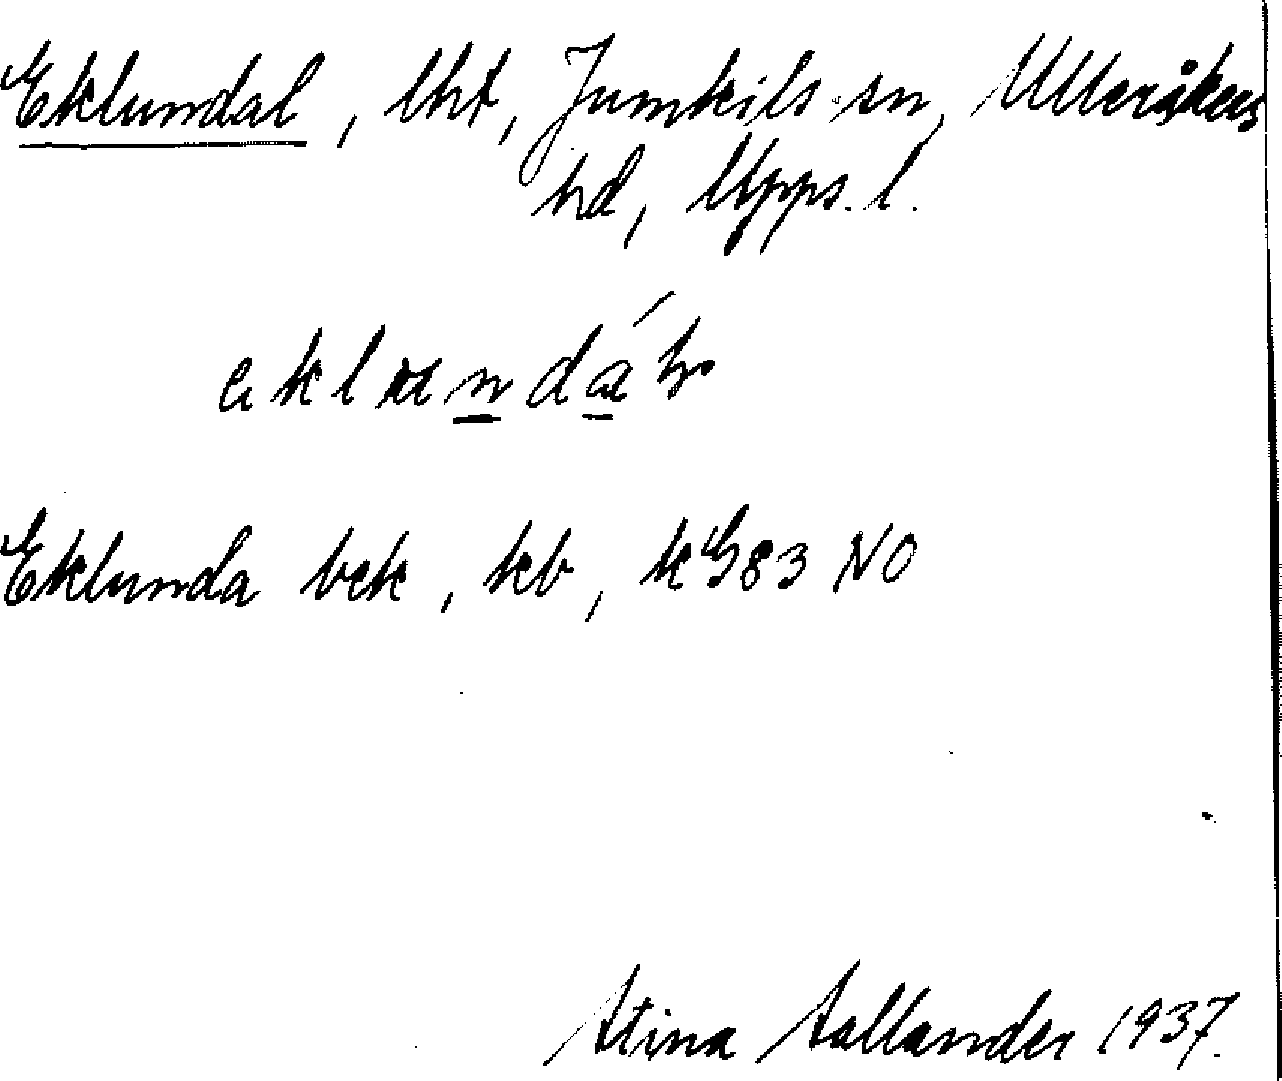 Eklundal, lht, Jumkils sn, Ulleråkers
hd, Upps. l.
Eklunda bek, kb, k G83 NO
Stina Sallander 1937.